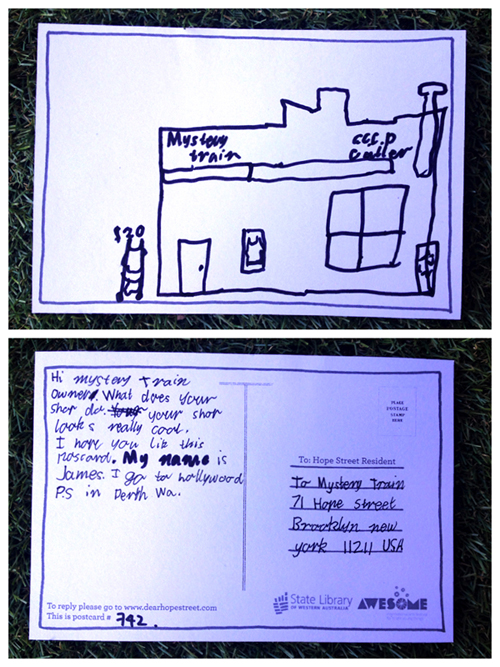 Mystery
train
$20
Hi mystery train
owners. What does your
shop do. your shop
looks really cool.
I hope you lik this
poscard. My name is
James. I go to hollywood
P.S in Perth Wa.
To reply please go to www.dearhopestreet.com
This is postcard # 742.
PLACE
POSTAGE
STAMP
HERE
To: Hope Street Resident
To Mystery Train
71 Hope street
Brooklyn new
york 11211 USA
State Library
OF WESTERN AUSTRALIA
AWESOME